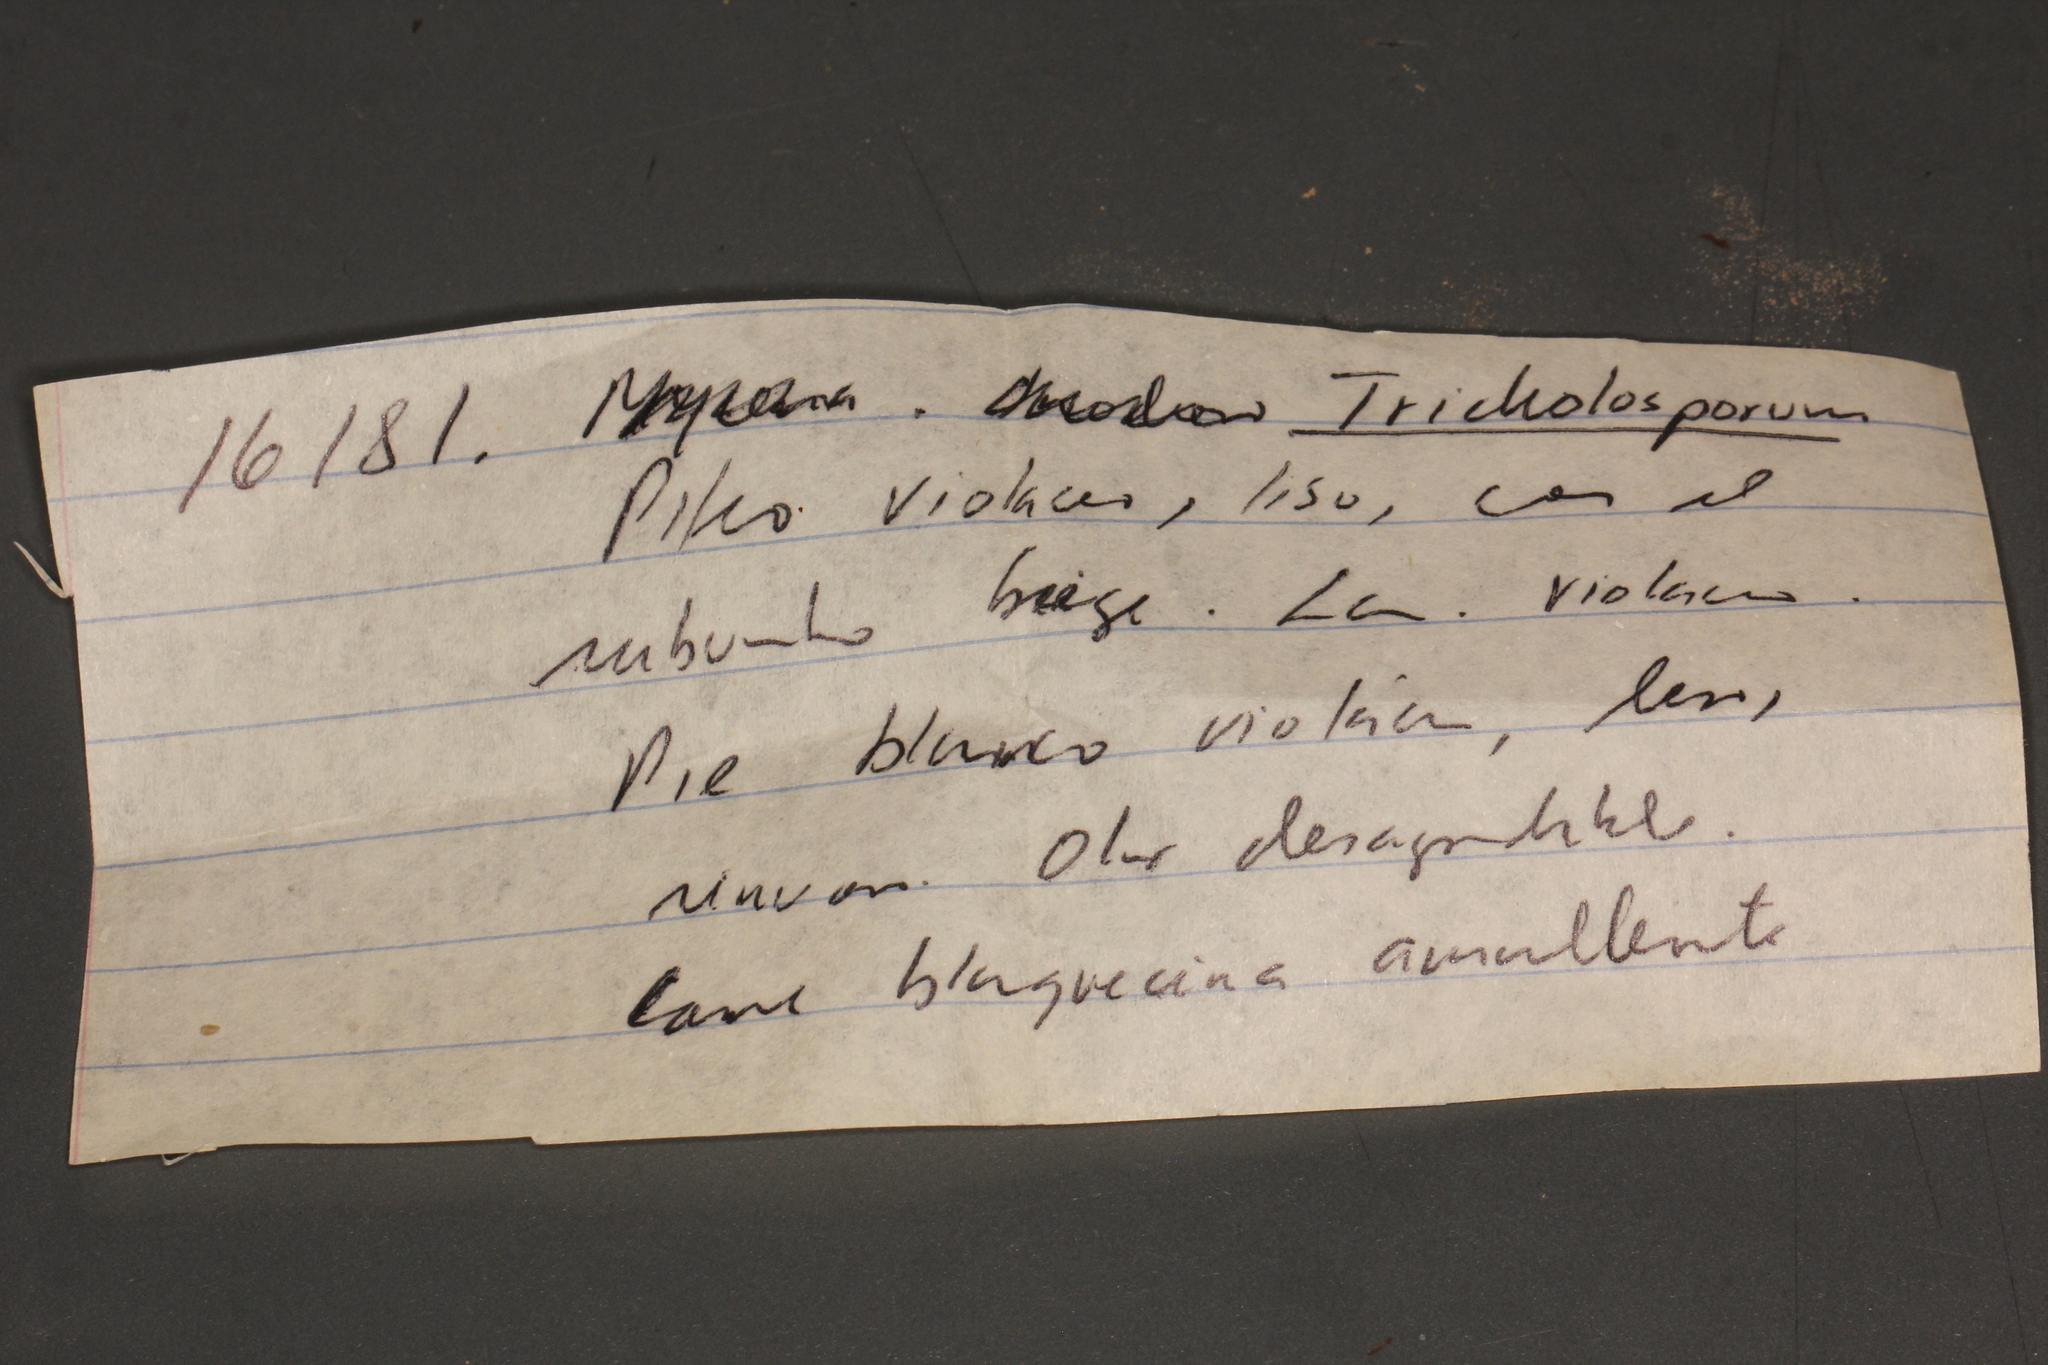 16181. Tricholosporum
Pileo violaceo, liso, con el
subumbo beige. Lam. violaceas.
Pie blanco violáceo, liso,
sin Olor desagradable.
Carne blanquecina amarillenta